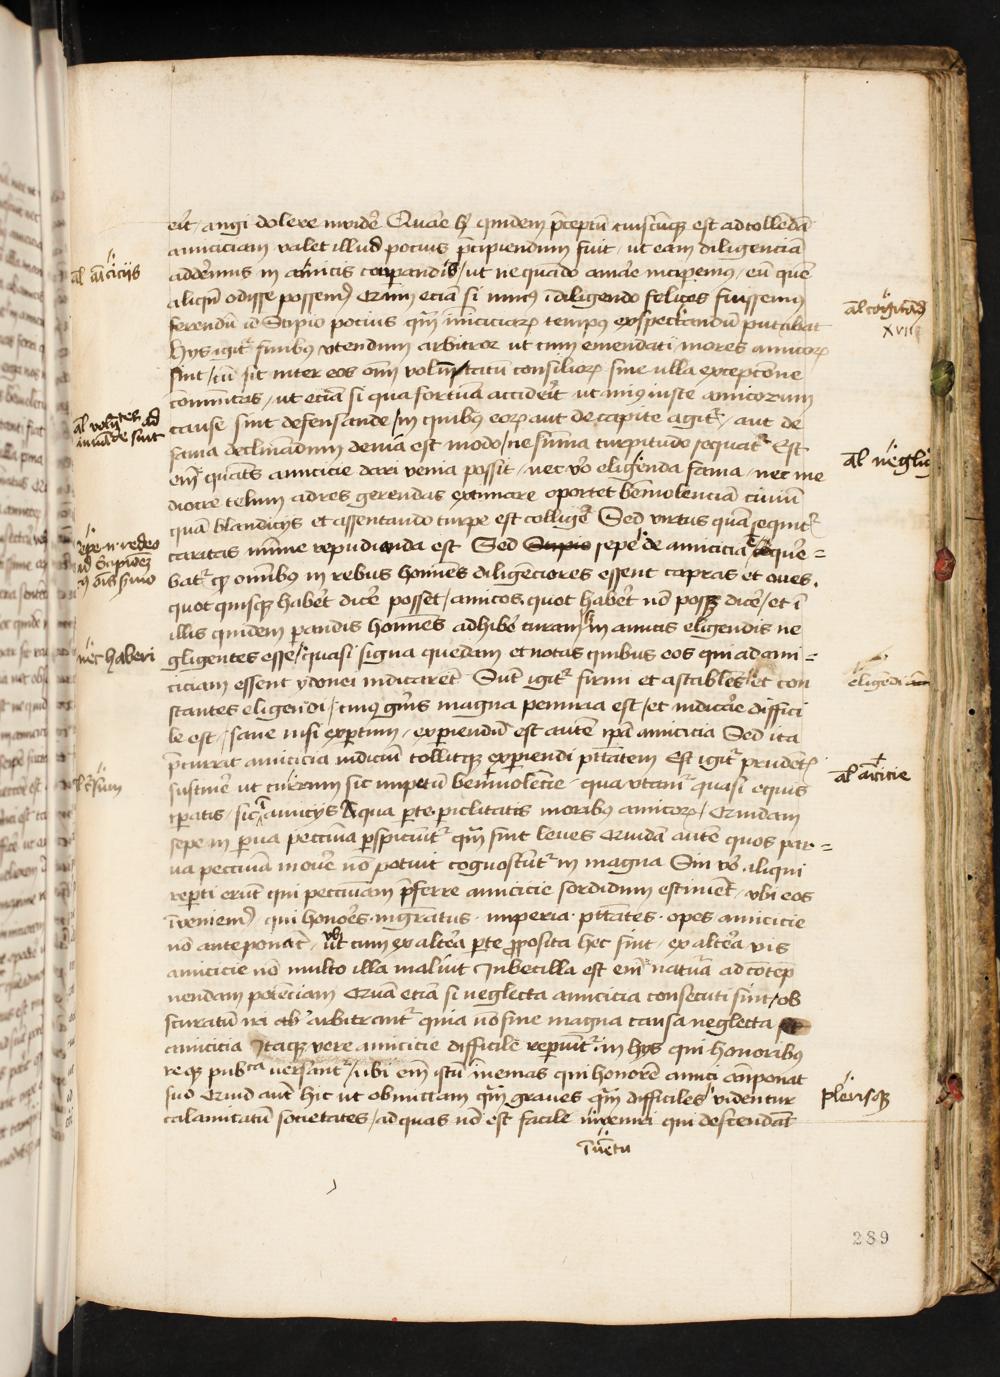 erit / angi dolere invidere Quare hoc quidem preceptum cuiuscumque est ad tollendam
amiciciam valet illud pocius precipiendum fuit / ut eam diligenciam
adderemus in amicis comparandis / ut ne quando amare inciperemus / eum quem
aliquando odisse possemus Quin eciam si minus in diligendo felices fuissemus
ferendum id Scipio pocius quam inimiciciarum tempus exspectandum putabat
hys igitur finibus utendum arbitror ut cum emendati mores amicorum
sint / tum sit inter eos omnium voluntatum consiliorum sine ulla exceptione
communitas / ut eciam si qua fortuna acciderit ut minus iuste amicorum
cause sint defensande / in quibus eorum aut de capite agitur / aut de
fama declinandum de via est modo / ne summa turpitudo sequatur Est
enim quatenus amicicie dari venia possit / nec vero eligenda fama / nec me
diocre telum ad res gerendas extimare oportet benivolenciam civium
quam blandicys et assentando turpe est colligere Sed virtus quam sequitur
caritas minime repudianda est Sed Scipio sepe de amicicia loque=
batur quod omnibus in rebus homines diligenciores essent capras et oves .
quot quisque haberet dicere posset / amicos quot haberet non posse dicere / et in
illis quidem parandis homines adhibere curam in amicis eligendis ne
gligentes esse / quasi signa quedam et notas quibus eos qui ad ami=
ciciam essent ydonei indicarent Sunt igitur firmi et astabiles et con
stantes eligendi / cuius generis magna penuria est / et indicare diffici
le est / sane nisi expertum / experiendum est autem ipsa amicicia Sed ita
precurrit amicicia iudicium tollitque experiendi potestatem Est igitur prudentis
sustinere ut currum sic impetum benivolencie . qua utamur quasi equis
temperatis / sic amicys Aqua parte periclitatis moribus amicorum / Quidam
sepe in parva peccunia perspiciuntur quam sint leves Quidam autem quos par=
va peccunia movere non potuit cognoscuntur in magna Sin vero aliqui
reperti erunt qui peccuniam preferre amicicie sordidum estiment . ubi eos
inveniemus qui honores . magistratus . imperia . potestates . opes amicicie
non anteponant . ut cum ex altera parte proposita hec sint . ex altera vis
amicicie non multo illa malint Inbecilla est enim natura ad contep
nendam potenciam Quam eciam si neglecta amicicia consecuti sint / ob
scuratum iri arbitrantur quia non sine magna causa neglecta
amicicia Itaque vere amicicie difficile reperiuntur in hys qui honoribus
re que publica versantur / ubi enim istum invenias qui honorem amici anteponat
suo Quid autem hic ut obmittam quam graves quam difficiles videntur
calamitatum societates / ad quas non est facile inventu qui descendant
al amiciciis
al voluntates ad
nec haberi
al negli
eligendi
al amicicie
plerisque
inventu
289